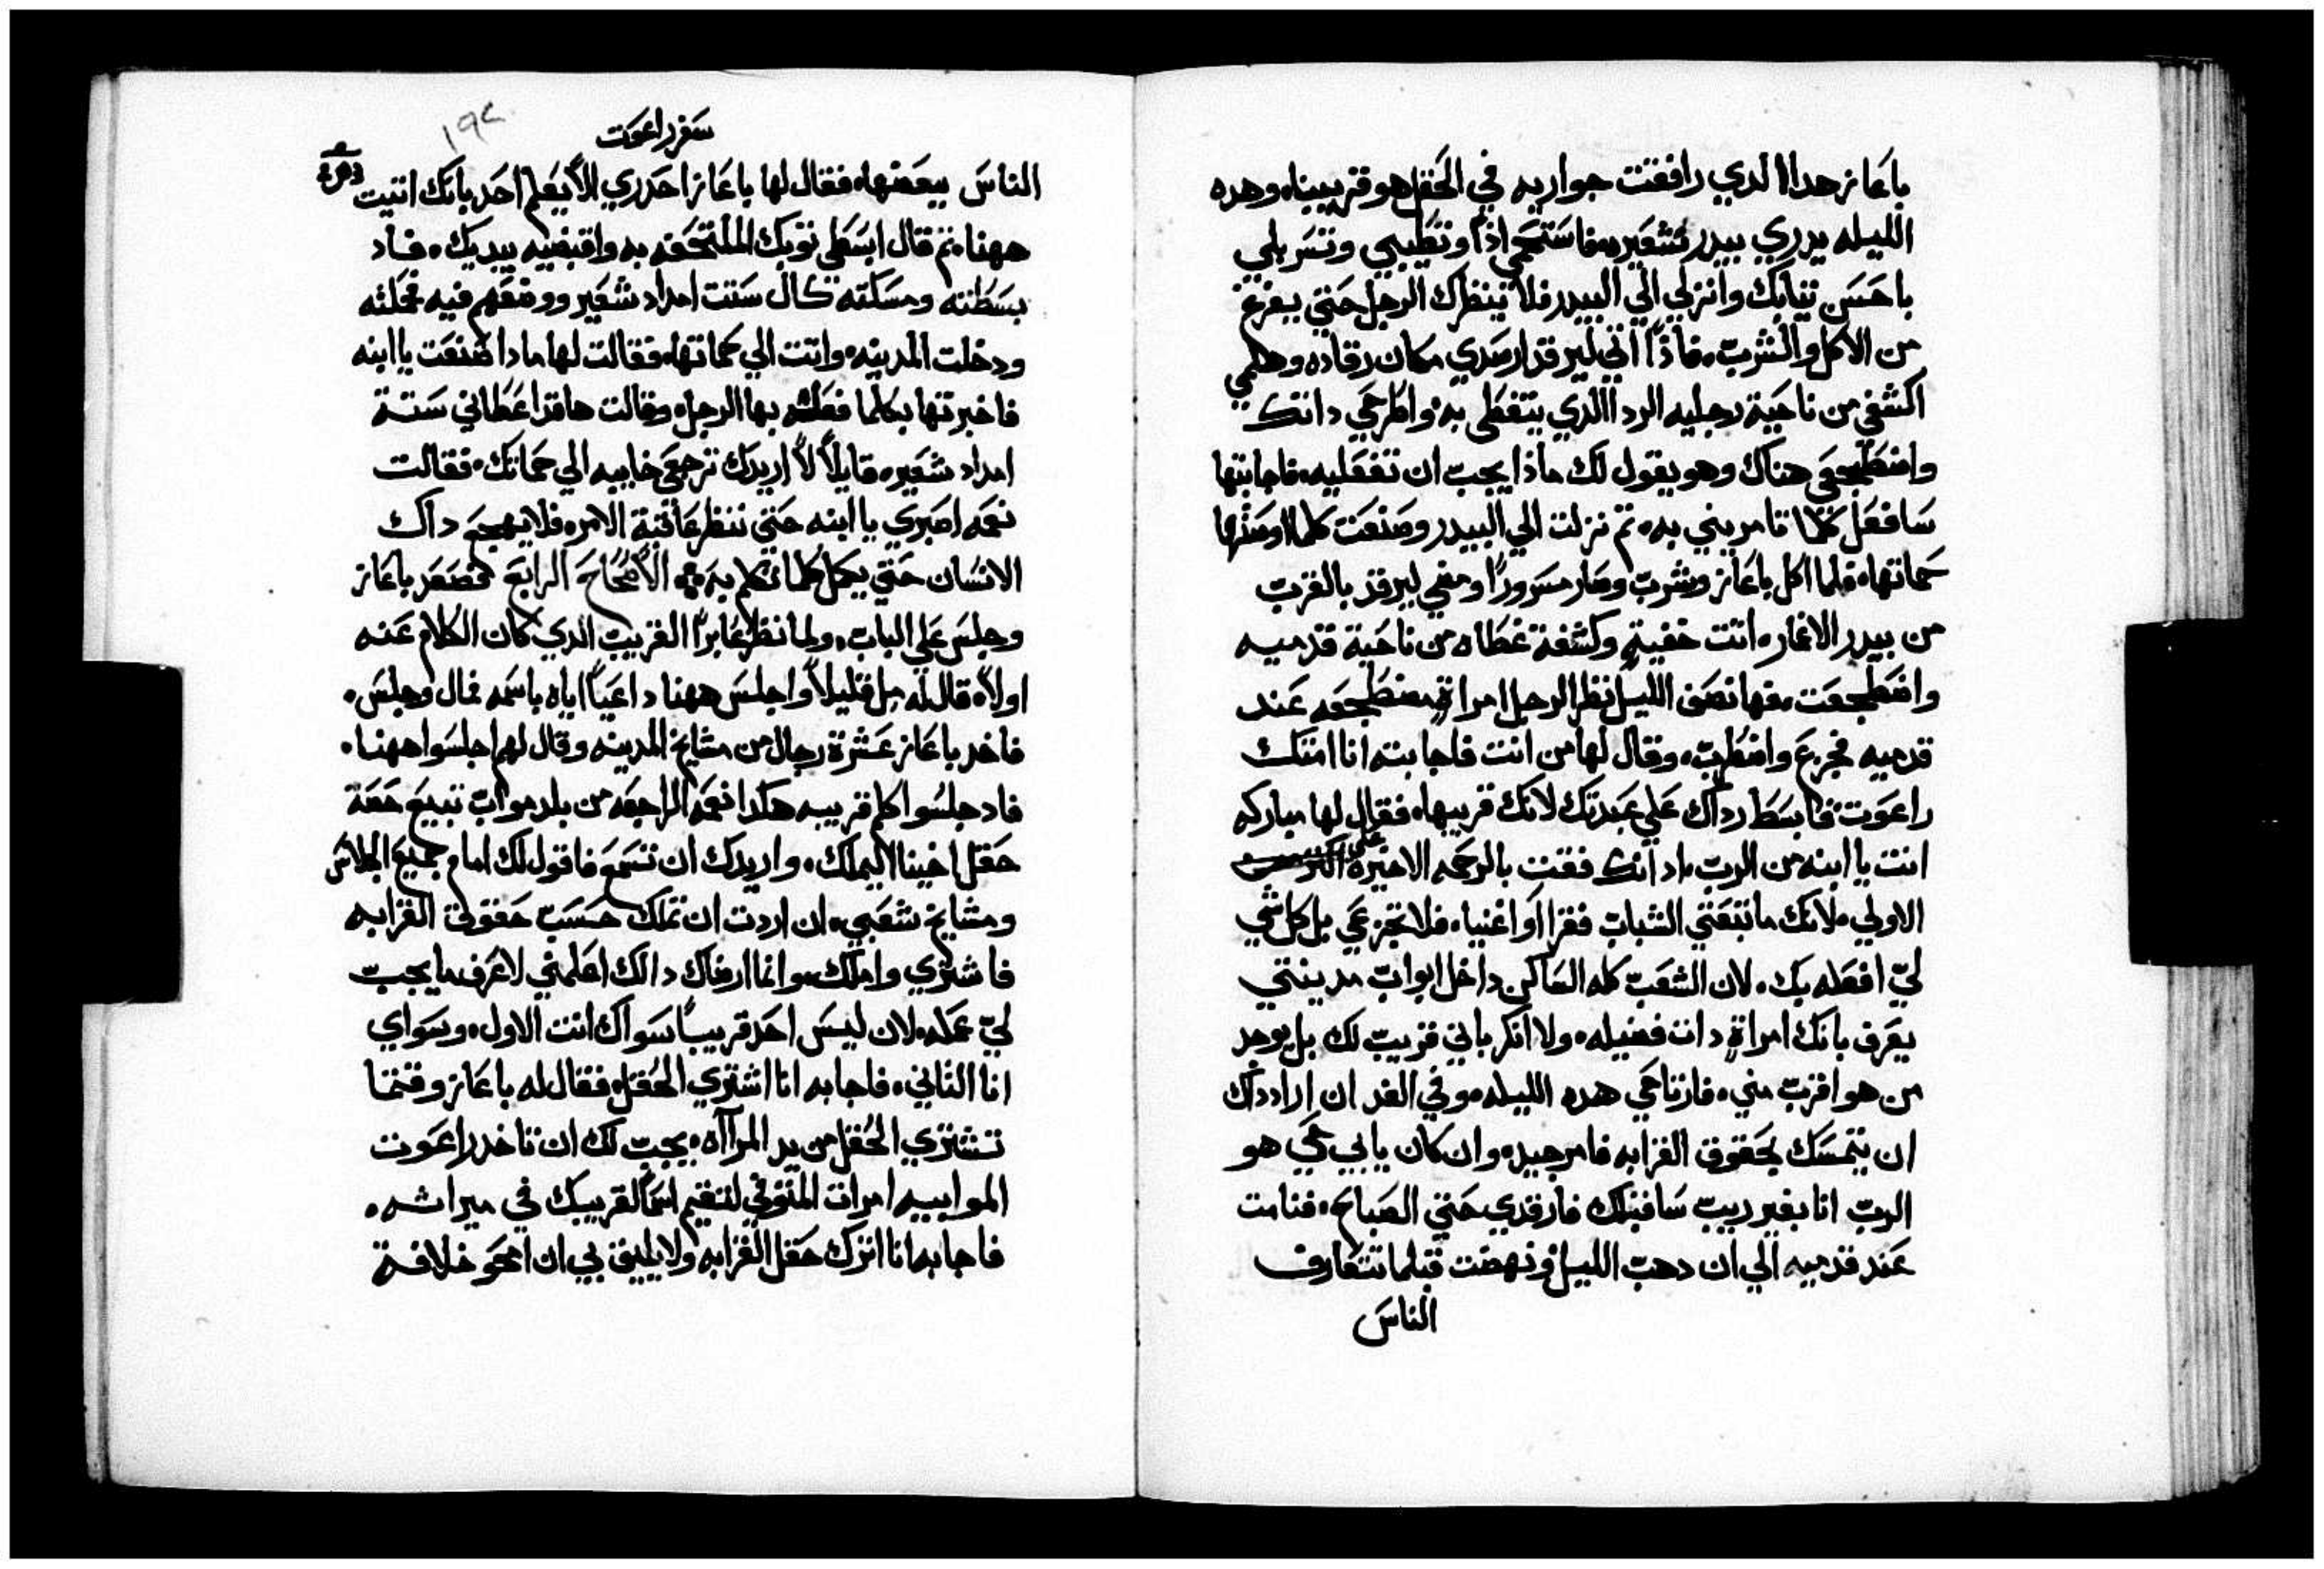 باعاز هدا الدي رافقت جواريه في الحقل هو قريبينا، وهده
الليله يدري بيدر شعير، فاستحمي اذاً وتطيبي وتسربلي
باحسن تيابك وانزلي الي البيدر فلا ينظرك الرجل حتي يفرغ
من الاكل والشرب، فاذاً اتي ليرقد ارصدي مكان رقاده وهلمي
اكشفي من ناحية رجليه الردا الدي يتغطي به، واطرحي داتك
واضطجعي هناك وهو يقول لك ماذا يجب ان تفعليه، فاجابتها
سافعل كلما تامريني به، تم نزلت الي البيدر وصنعت كلما اوصتها
حماتها، فلما اكل باعاز وشرب وصار مسروراً ومضي ليرقد بالقرب
من بيدر الاغمار، اتت خفيةٍ وكشفة غطاه من ناحية قدميه
واضطجعت، فها نصف الليل نظر الرجل امراةٍ مضطجعه عند
قدميه فجزع واضطرب، وقال لها من انت فاجابته انا امتك
راعوت فابسط رداك علي عبدتك لانك قريبها، فقال لها مباركه
انت يا ابنه من الرب، اد انك فقت بالرحمه الاخيرة علي
الاولي، لانك ما تبعتي الشباب فقرا او اغنيا، فلا تجزعي بل كل شي
لي افعله بك، لان الشعب كله الساكن داخل ابواب مدينتي
يعرف بانك امراةٍ دات فضيله، ولا انكر باني قريب لك بل يوجد
من هو اقرب مني، فارتاحي هده الليله، وفي الغد ان اراد داك
ان يتمسك بحقوق القرابه فامر جيد، وان كان يابي حي هو
الرب انا بغير ريب ساقبلك فارقدي حتي الصباح، فنامت
عند قدميه الي ان دهب الليل ونهضت قبلما تتعارف
الناس
سفر راعوت
١٩٤
الناس ببعضها، فقال لها باعاز احدري الا يعلم احد بانك اتيت
ههنا، تم قال ابسطي توبك الملتحفه به واقبضيه بيديك، فاد
بسطته ومسكته كال ستت امداد شعير ووضعهم فيه فحملته
ودخلت المدينه، واتت الي حماتها، فقالت لها مادا صنعت يا ابنه
فاخبرتها بكلما فعله بها الرجل، وقالت ها قد اعطاني ستة
امداد شعير، قايلاً لا اريدك ترجعي خاييه الي حماتك، فقالت
نعمه اصبري يا ابنه حتي ننظر عاقبة الامر، فلا يهجع داك
الانسان حتي يكمل كلما تكلم به الاصحاح الرابع فصعد باعاز
وجلس علي الباب، ولما نظر عابراً القريب الدي كان الكلام عنه
اولاً، قال له مل قليلاً واجلس ههنا داعياً اياه باسمه فمال وجلس،
فاخد باعاز عشرة رجال من مشايخ المدينه وقال لهم اجلسوا ههنا،
فاد جلسوا كلم قريبه هكدا نعمه الراجعه من بلد مواب تبيع حصة
حقل اخينا اليملك، واريدك ان تسمع فاقول لك امام جميع الجلاس
ومشايخ شعبي، ان اردت ان تملك حسب حقوق القرابه
فاشتري واملك، وانما ارضاك دالك اعلمني لاعرف ما يجب
لي عمله، لان ليس احد قريباً سواك انت الاول، وسواي
انا التاني، فاجابه انا اشتري الحقل، فقال له باعاز وقتما
تشتري الحقل من يد المراآه، يجب لك ان تاخد راعوت
الموابيه امرات المتوفي لتقيم اسم القريبك في ميراته،
فاجابه انا اترك حقل القرابه ولا يليق بي ان امحو خلافة